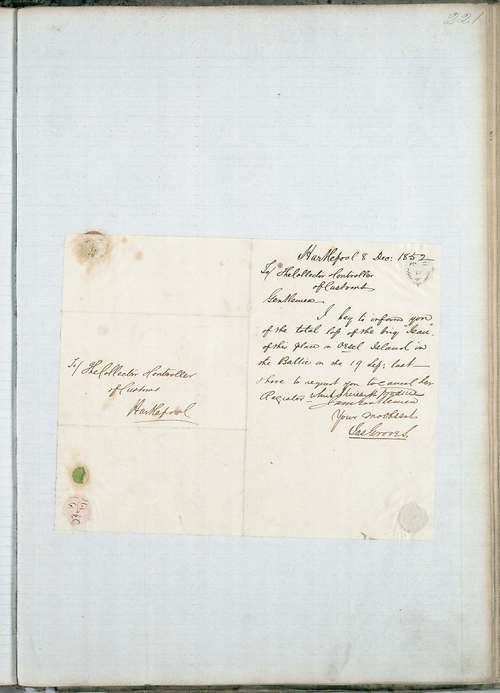 221
Hartlepool 8 Dec: 1852
To/ The Collector & Controller
of Customs
Gentlemen
I beg to inform you
of the total loss of the brig
of this place on Oesel Island in
the Baltic on the 19 Sep: last
I have to request you to cancel her
Register which I herewith produce
I am Gentlemen
Your Mo Obedt
Jas Groves.
To/ The Collector & Controller
of Customs
Hartlepool